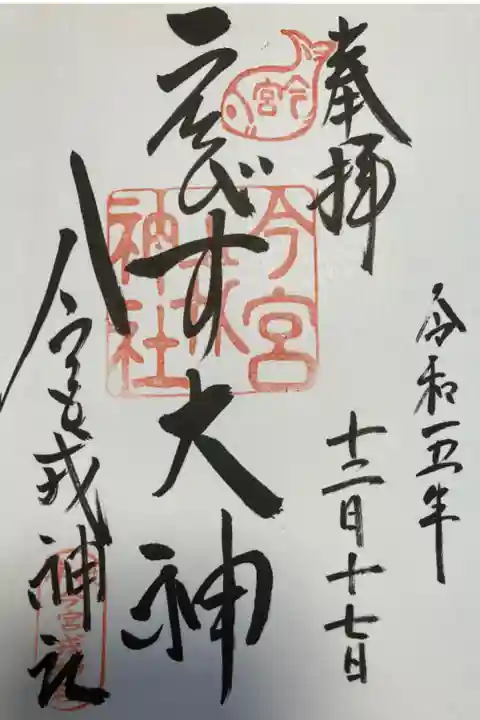 奉拝
令和五年
十二月十七日
ゑびす大神
今宮戎神社
今宮
今宮
神社